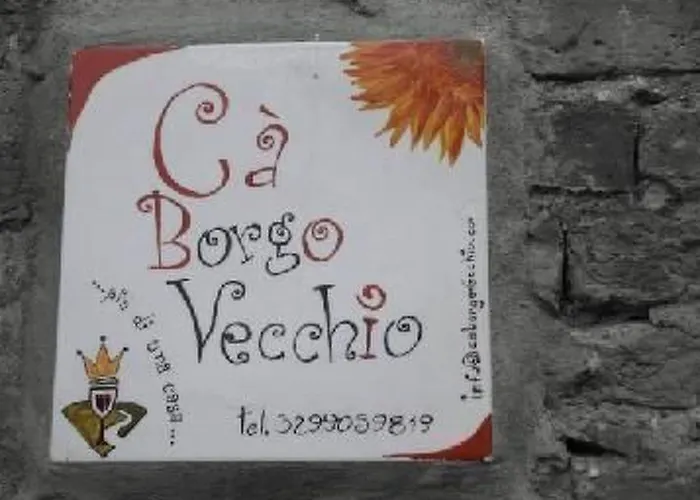 Cà
Borgo
Vecchio
...più di una casa...
tel. 3299059819
info@caborgovecchio.com